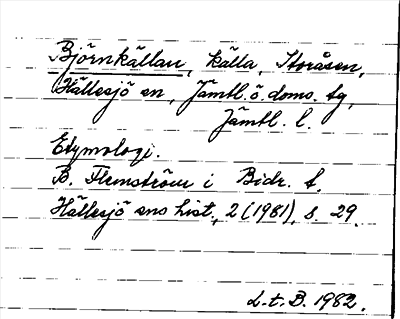 Björnkällan, källa, Storåsen,
Hällesjö sn, Jämtl. ö. doms. tg,
Jämtl. l.
Etymologi.
B. Flemström i Bidr. t.
Hällesjö sns hist., 2 (1981), s. 29.
L.t.B. 1982.